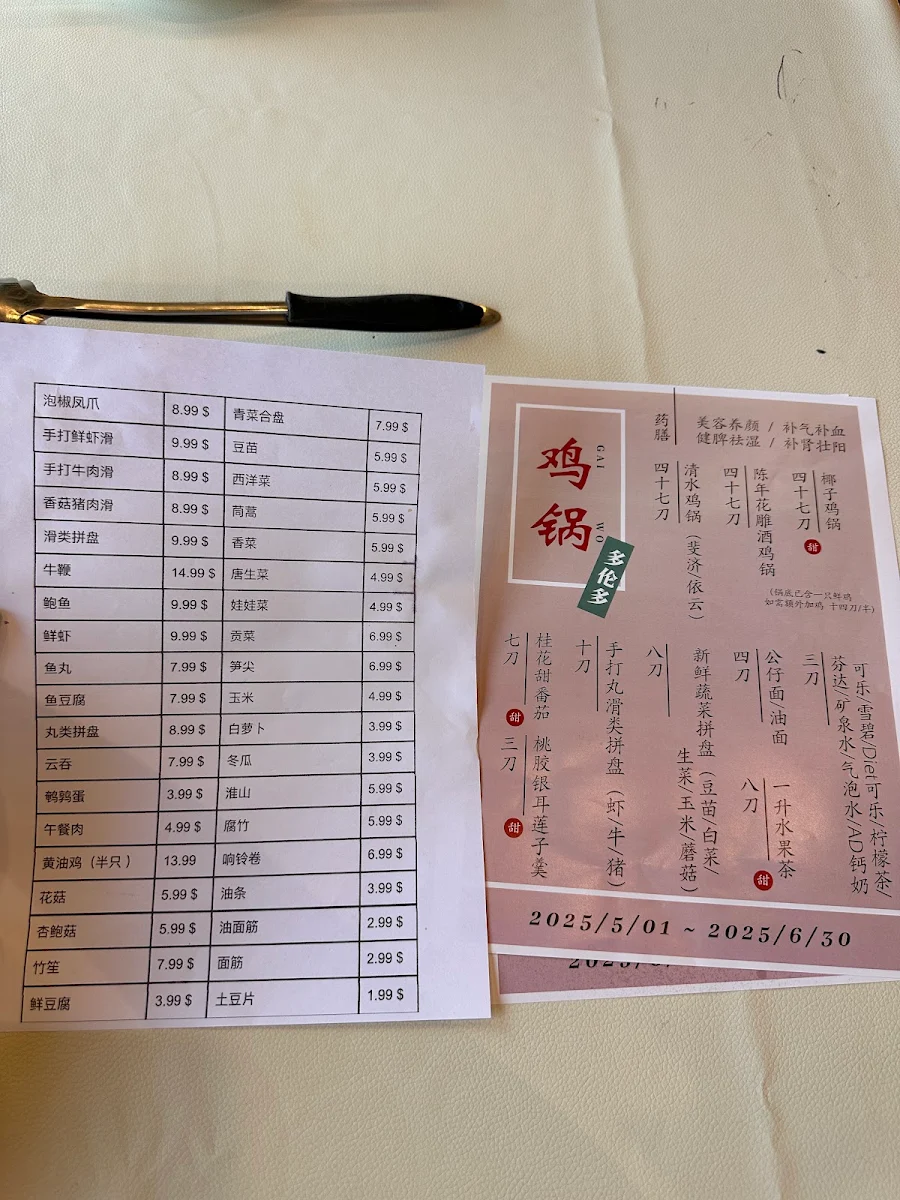 泡椒凤爪 8.99 $ 青菜合盘 7.99 $
手打鲜虾滑 9.99 $ 豆苗 5.99 $
手打牛肉滑 8.99 $ 西洋菜 5.99 $
香菇猪肉滑 8.99 $ 茼蒿 5.99 $
滑类拼盘 9.99 $ 香菜 5.99 $
牛鞭 14.99 $ 唐生菜 4.99 $
鲍鱼 9.99 $ 娃娃菜 4.99 $
鲜虾 9.99 $ 贡菜 6.99 $
鱼丸 7.99 $ 笋尖 6.99 $
鱼豆腐 7.99 $ 玉米 4.99 $
丸类拼盘 8.99 $ 白萝卜 3.99 $
云吞 7.99 $ 冬瓜 3.99 $
鹌鹑蛋 3.99 $ 淮山 5.99 $
午餐肉 4.99 $ 腐竹 5.99 $
黄油鸡（半只 ） 13.99 响铃卷 6.99 $
花菇 5.99 $ 油条 3.99 $
杏鲍菇 5.99 $ 油面筋 2.99 $
竹笙 7.99 $ 面筋 2.99 $
鲜豆腐 3.99 $ 土豆片 1.99 $
鸡锅
GAI WO
多伦多
药膳
美容养颜 / 补气补血
健脾祛湿 / 补肾壮阳
椰子鸡锅
四十七刀
甜
陈年花雕酒鸡锅
四十七刀
清水鸡锅（斐济/依云）
四十七刀
(锅底已含一只鲜鸡
如需额外加鸡 十四刀/半)
可乐/雪碧/Diet可乐/柠檬茶/
芬达/矿泉水/气泡水/AD钙奶
三刀
公仔面/油面
四刀
一升水果茶
八刀
甜
新鲜蔬菜拼盘（豆苗/白菜/
生菜/玉米/蘑菇）
八刀
手打丸滑类拼盘（虾/牛/猪）
十刀
桂花甜番茄
七刀
甜
桃胶银耳莲子羹
三刀
甜
2025/5/01 ~ 2025/6/30